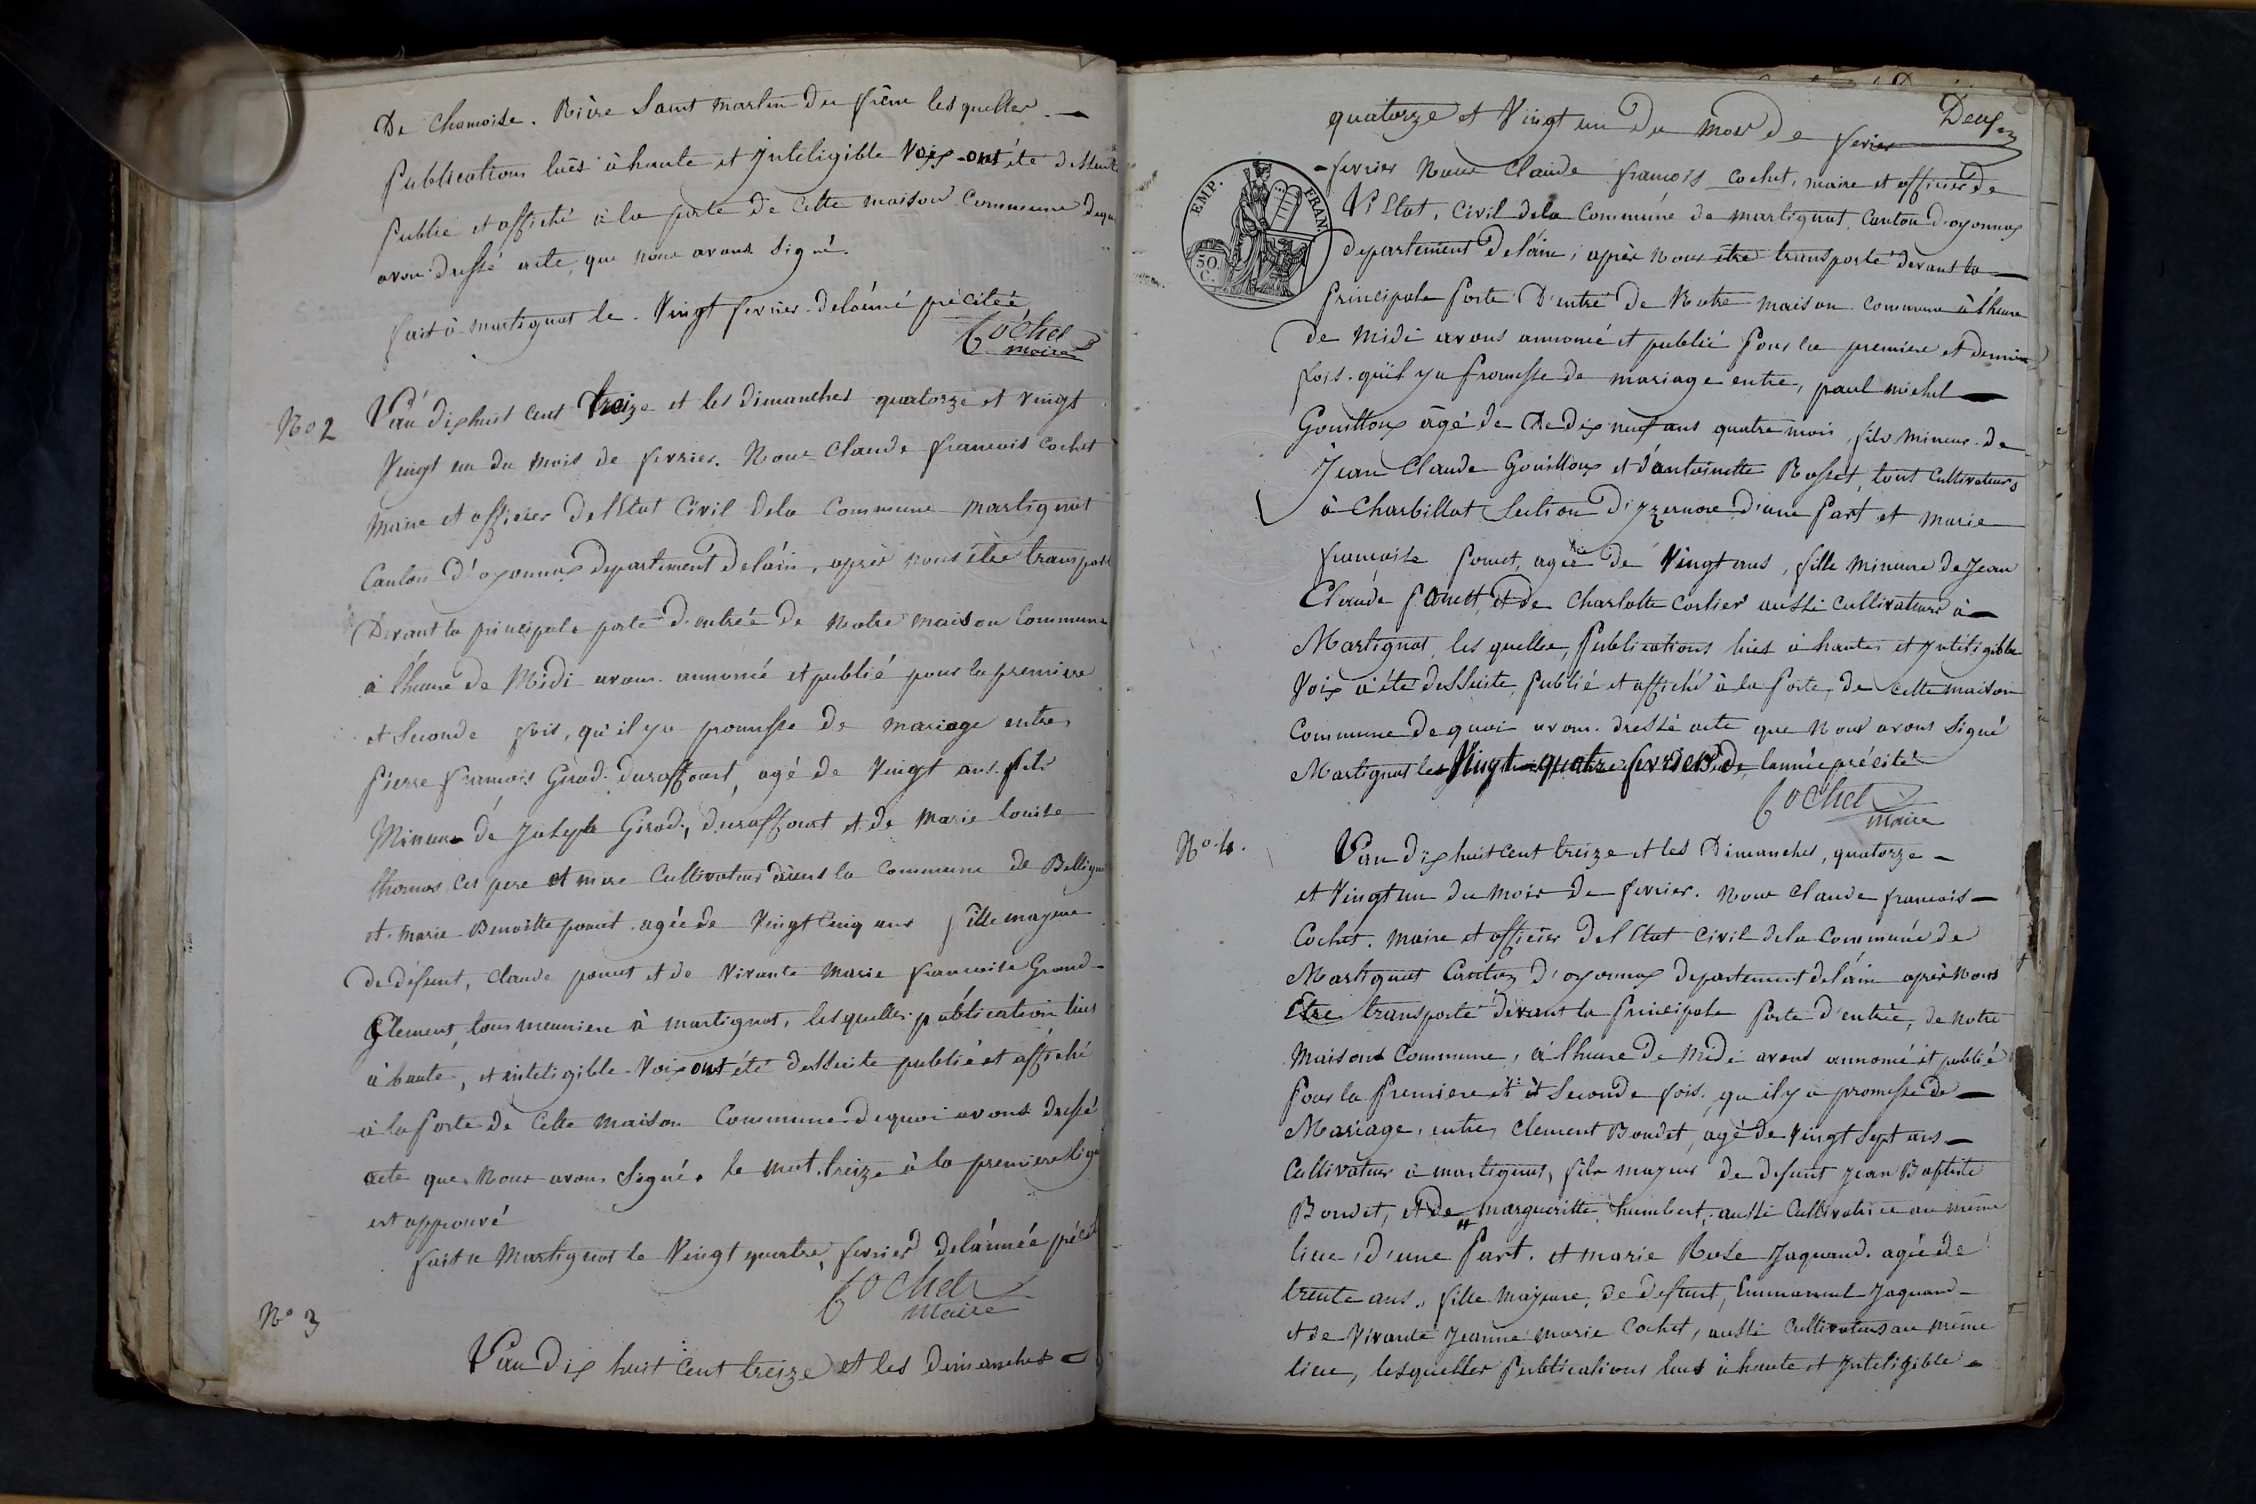 De Chamoise. Rière Saint martin du frêne les quelles
publications luës à haute et Inteligible Voix ont été dessuite
publié et affiché à la porte de cette maison Commune dequoi
avons dressé acte, que nous avons signé.
fait à martignat le Vingt fevrier de l'année précitée
Cochet
maire
No 2
L'an dixhuit cent treize et les dimanches quatorze et vingt
Vingt un du mois de fevrier. Nous Claude francois Cochet
maire et officier de l'Etat Civil dela Commune Martignat
Canton d'oyonnax departement de l'ain, après nous être transporté
Devant la principale porte d'entrée de Notre maison Commune
à l'heure de Midi avons annoncé et publié pour la premiere
et Seconde fois, qu'il y a promesse de mariage entre
pierre francois Girod duraffourt, agé de Vingt ans fils
Mineur de Joseph Girod, duraffourt et de Marie louise
thomas ces pere et mere Cultivateurs dans la Commune de Bellignat
et marie Benoitte ponet agée de Vingt Cinq ans fille majeure
de défunt, Claude ponet et de Vivante Marie francoise Grand-
Clement, tous meuniers à martignat, lesquelles publication lues
à haute, et inteligible Voix ont été dessuite publié et affiché
à la porte de Cette maison Commune dequoi avons dressé
acte que Nous avons Signé. le mot treize à la premiere ligne
est approuvé
fait à Martignat le Vingt quatre, fevrier de l'année précitée
Cochet
Maire
No 3
L'an dix huit cent treize et les dimanches
Deux
quatorze et Vingt un Du mois de fevrier
fevrier Nous Claude francois cochet, maire et officier de
l'Etat, Civil dela Commune de martignat Canton d'oyonnax
departement de l'ain, après nous être transporté devant la
EMP. FRAN.
50 C.
principale porte D'entré de Notre maison commune à l'heure
de Midi avons annoncé et publié pour la premiere et derniere
fois. qu'il y a promesse de mariage entre, paul michel
Gouilloux âgé de De dix neuf ans quatre mois, fils mineur de
Jean Claude Gouilloux et d'antoinette Rosset, tous Cultivateurs
à Charbillat Section d'yzernore d'une part et marie
francoise ponet, agée de Vingt ans, fille mineure de Jean
Claude ponet, et de Charlotte Carlier aussi cultivateurs à
Martignat, les quelles, publications lues à haute et Inteligible
Voix à été dessuite, publié et affiché à la porte, de cette maison
commune de quoi avons dressé acte que Nous avons Signé
Martignat le Vingt quatre fevrier de l'année précité
Cochet
Maire
No 4.
L'an dixhuit cent treize et les Dimanches, quatorze
et Vingt un du mois de fevrier. Nous claude francois
Cochet. Maire et officier de l'Etat civil dela Commune de
Martignat Canton d'oyonnax departement de l'ain après Nous
Etre transporté devant la principale porte d'entrée, de notre
Maison Commune, à l'heure de Midi avons annoncé et publié
pour la premiere et Seconde fois. qu'il y a promesse de
Mariage, entre, clement Bondet, agé de Vingt Sept ans
Cultivateur à martignat, fils majeur de defunt Jean Baptiste
Bondet, et de Margueritte, humbert, aussi Cultivatrice au même
lieu, d'une part. et marie Rose Jaquand. agée de
trente ans, fille majeure, de defunt, Emmanuel Jaquand
et de Vivante Jeanne marie Cochet, aussi Cultivateurs au même
lieu, lesquelles publications lues à haute et Inteligible